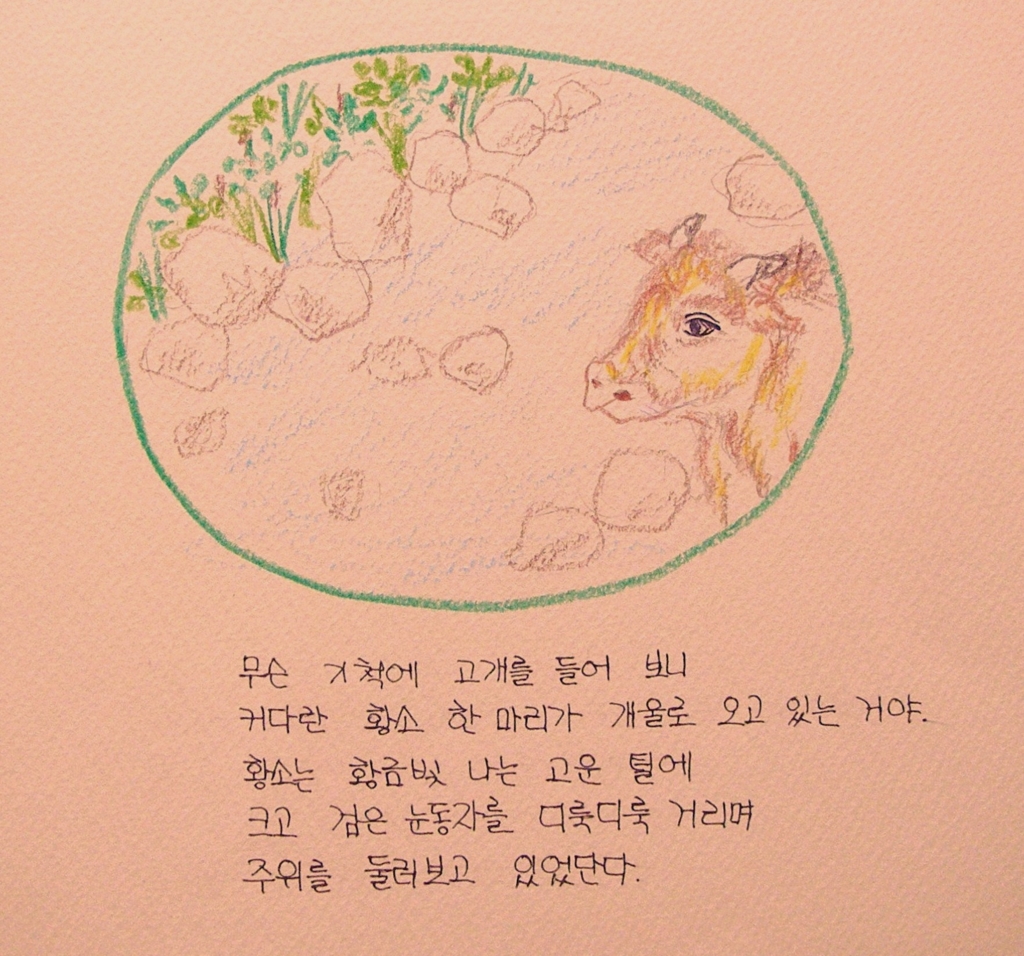 무슨 기척에 고개를 들어 보니
커다란 황소 한 마리가 개울로 오고 있는 거야.
황소는 황금빛 나는 고운 털에
크고 검은 눈동자를 디룩디룩 거리며
주위를 둘러보고 있었단다.